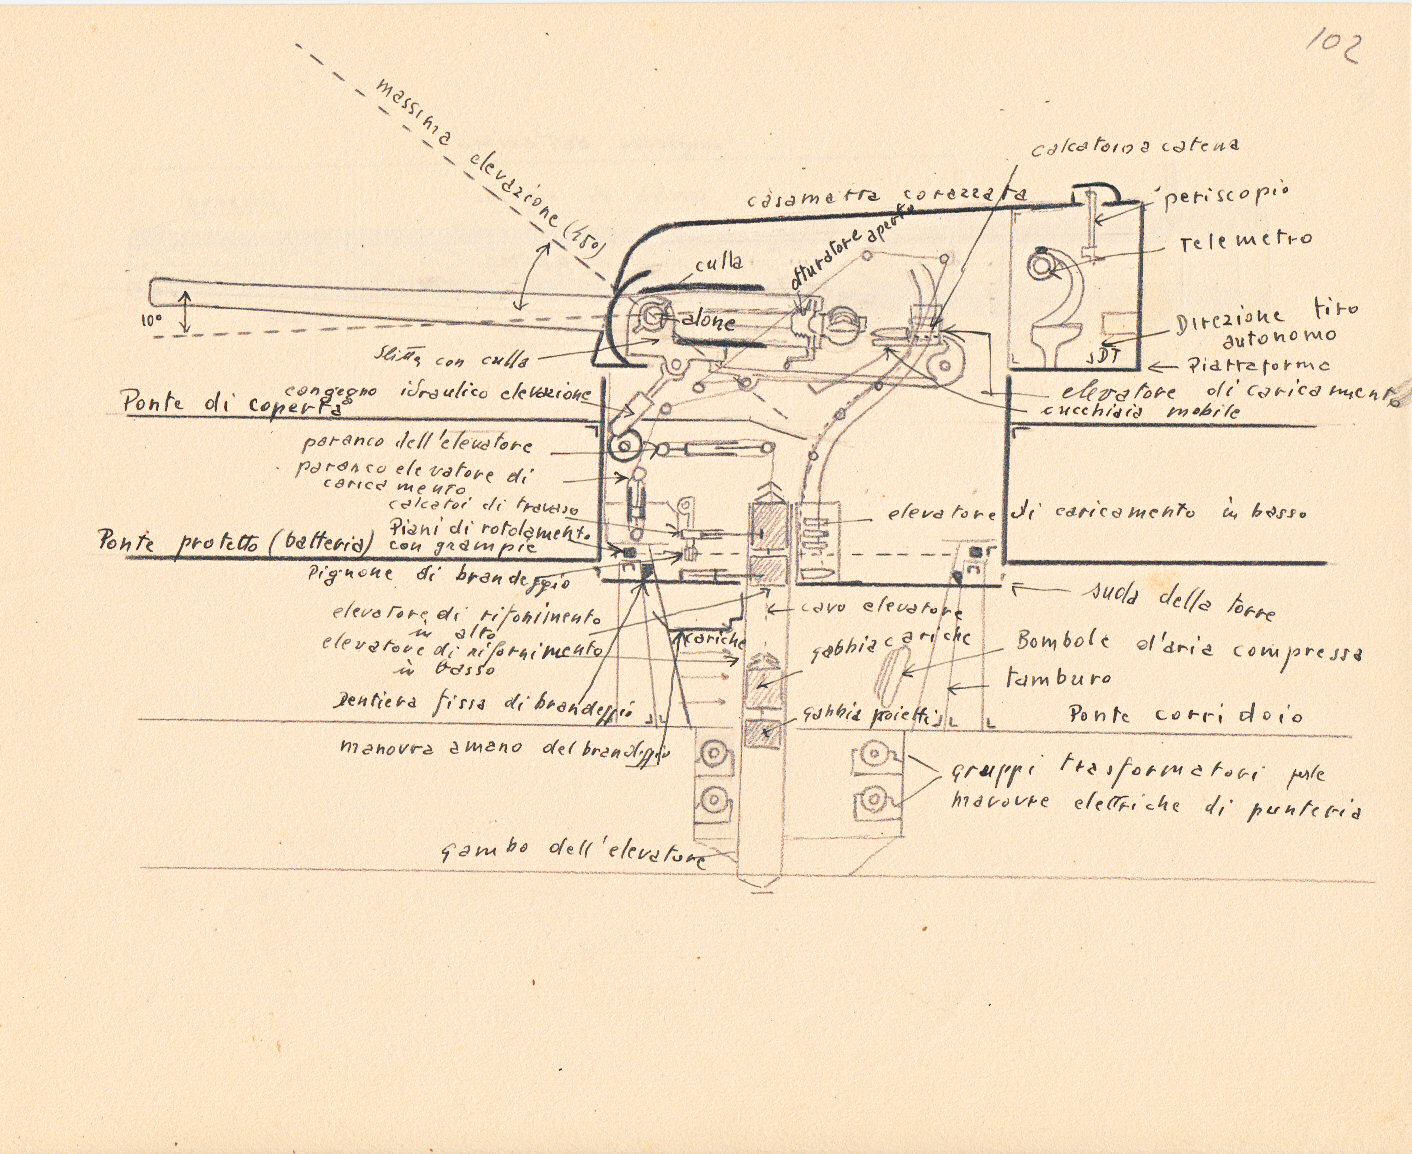 102
massima elevazione (450)
calcatoio a catena
casamatta corazzata
periscopio
otturatore aperto
Telemetro
culla
10°
alone
Direzione tiro
autonomo
slitta con culla
SDT
Piattaforma
congegno idraulico elevazione
elevatore di caricamento
cucchiaia mobile
Ponte di coperta
paranco dell'elevatore
paranco elevatore di
caricamento
calcatoi di travaso
elevatore di caricamento in basso
Piani di rotolamento
con grampie
Ponte protetto (batteria)
Pignone di brandeggio
suola della torre
elevatore di rifornimento
in alto
cavo elevatore
cariche
gabbia cariche
Bombole d'aria compressa
elevatore di rifornimento
in basso
tamburo
Dentiera fissa di brandeggio
gabbia poietti
Ponte corridoio
manovra amano del brandeggio
gruppi trasformatori per le
manovre elettriche di punteria
gambo dell'elevatore